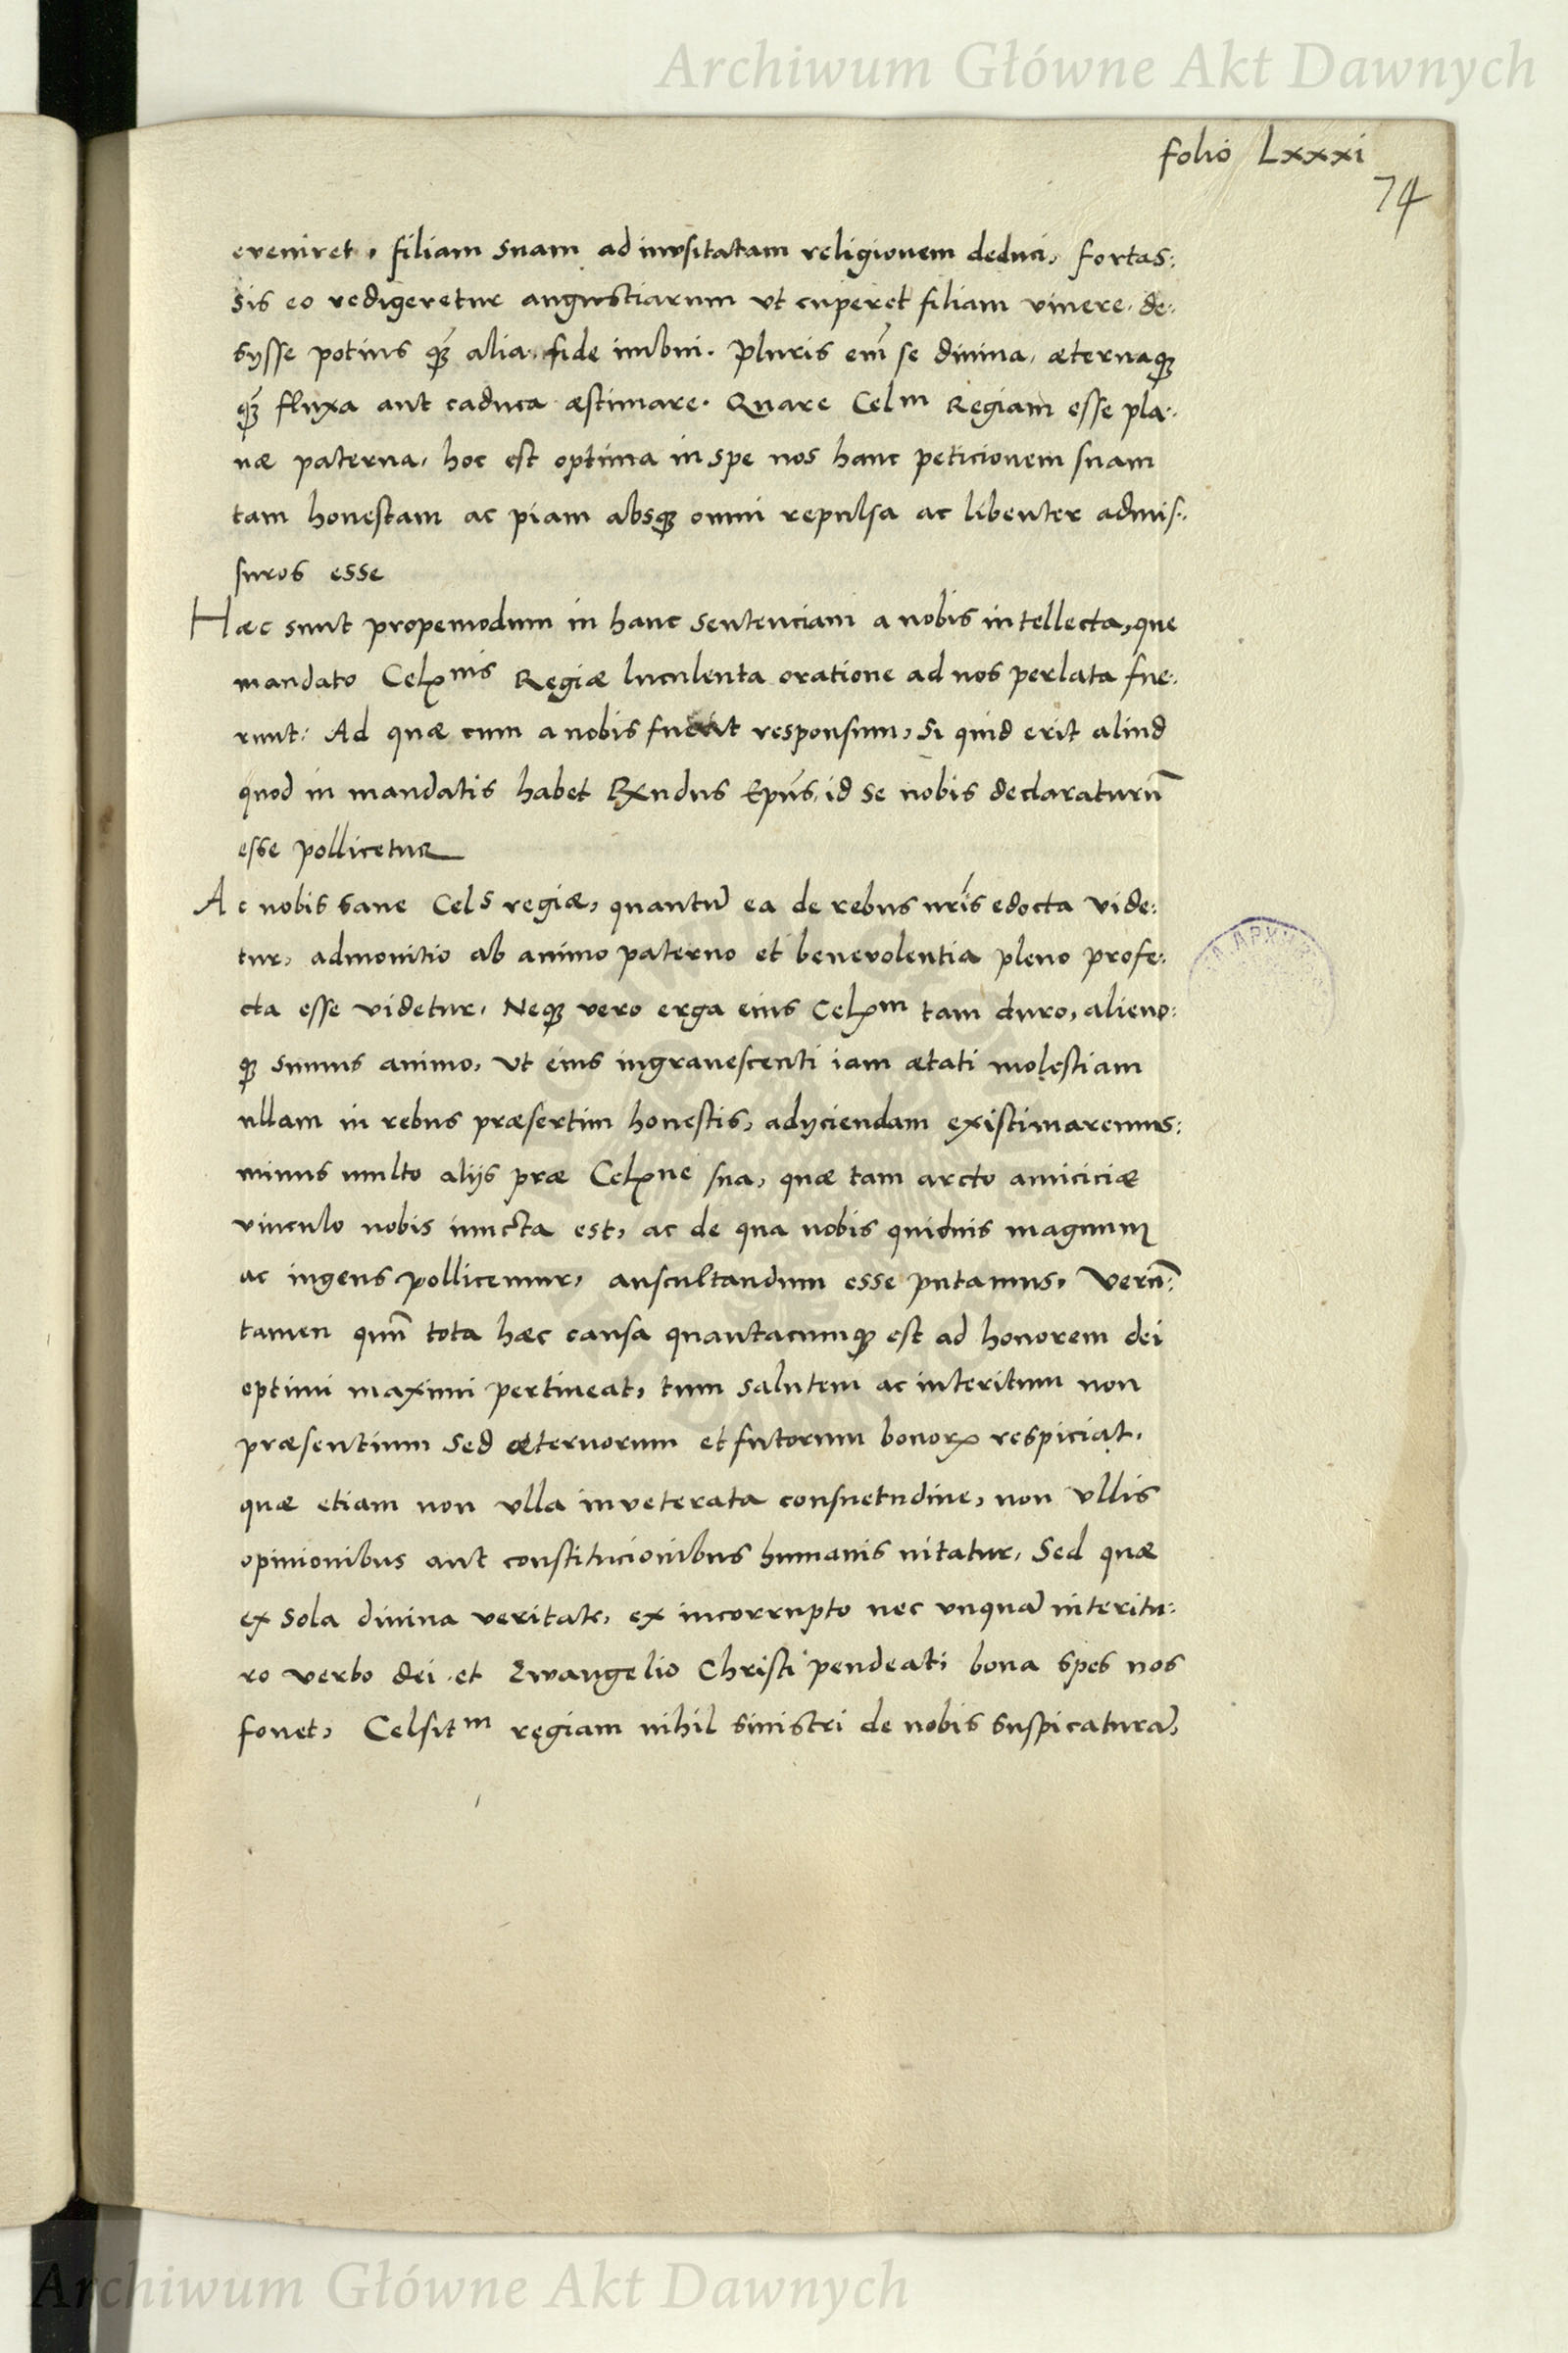 Archiwum Główne Akt Dawnych
folio Lxxxi
74
eveniret, filiam suam ad inusitatam religionem deduci, fortas:
sis eo redigeretur angustiarum ut cuperet filiam vivere de:
sysse potius q̃ alia fide imbui. Pluris em̃ se divina, æternaq;
q̃ fluxa aut caduca æstimare. Quare Celm Regiam esse pla:
næ paterna, hoc est optima in spe nos hanc peticionem suam
tam honestam ac piam absq; omni repulsa ac libenter admis:
suros esse
Hæc sunt propemodum in hanc sentenciam a nobis intellecta, que
mandato Celxnis Regiæ luculenta oratione ad nos perlata fue:
runt: Ad quæ cum a nobis fuerit responsum, Si quid erit aliud
quod in mandatis habet Rxndus Ep̃us, id se nobis declaraturũ
esse pollicetur
Ac nobis sane Cels regiæ, quantũ ea de rebus nr̃is edocta vide:
tur, admonitio ab animo paterno et benevolentia pleno profe:
cta esse videtur. Neq; vero erga eius Celxm tam duro, alieno:
q; sumus animo, ut eius ingravescenti iam ætati molestiam
ullam in rebus præsertim honestis, adyciendam existimaremus:
minus multo aliis præ Celxne sua, quæ tam arcto amiciciæ
vinculo nobis iuncta est, ac de qua nobis quidvis magnum
ac ingens pollicemur, auscultandum esse putamus, Verũ:
tamen quũ tota hæc causa quantacumq; est ad honorem dei
optimi maximi pertineat, tum salutem ac interitum non
præsentium Sed æternorum et futorum bonorꝝ respiciat,
quæ etiam non ulla inveterata consuetudine, non ullis
opinionibus aut constitucionibus humanis nitatur, Sed quæ
ex sola divina veritate, ex incorrupto nec unquã interitu:
ro verbo dei et Ewangelio Christi pendeat; bona spes nos
fovet, Celsitm regiam nihil sinistri de nobis suspicaturã,
Archiwum Główne Akt Dawnych